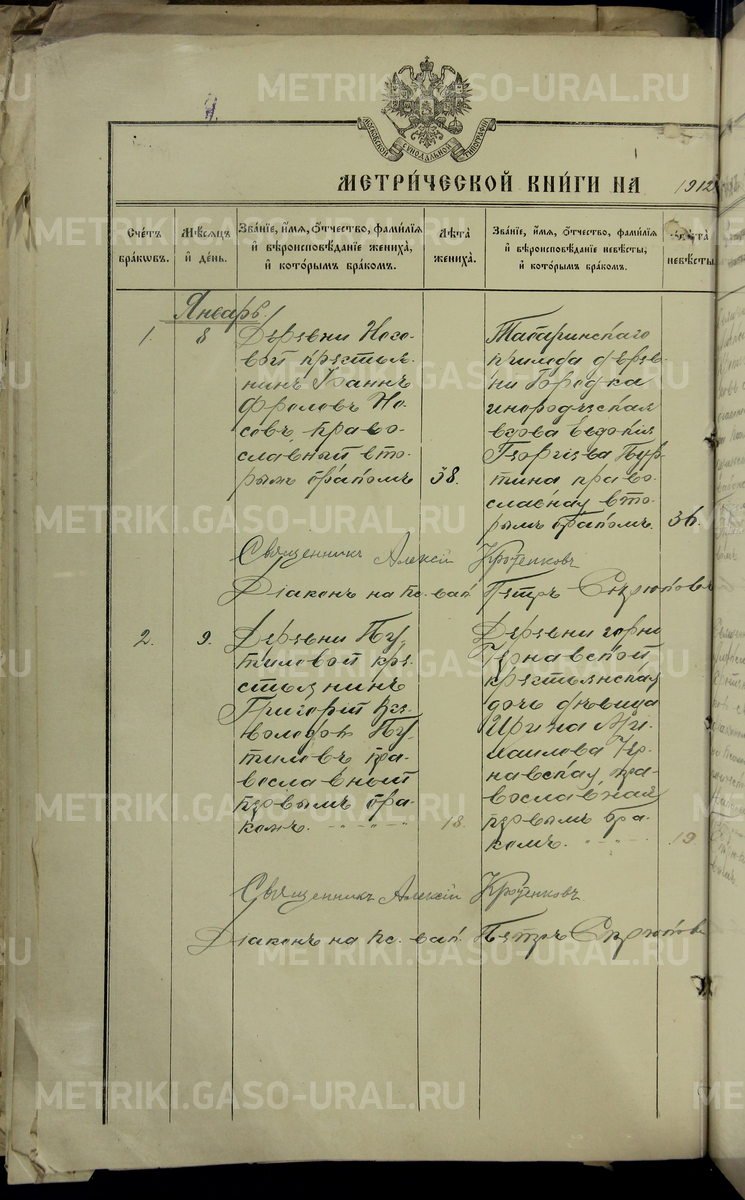 METRIKI.GASO-URAL.RU
МОСКОВСКОЙ СѴНОДАЛЬНОЙ ТИПОГРАФІИ
МЕТРИ́ЧЕСКОЙ КНИ́ГИ НА 1912
Сче́тъ бра́кѡвъ.
Мѣ́сѧцъ и҆ де́нь.
Зва́нїе, и҆́мѧ, ѻ҆́тчество, фами́лїѧ
и҆ вѣроисповѣ́данїе жениха̀,
и҆ кото́рымъ бра́комъ.
Лѣ́та жениха̀.
Зва́нїе, и҆́мѧ, ѻ҆́тчество, фами́лїѧ
и҆ вѣроисповѣ́данїе невѣ́сты,
и҆ кото́рымъ бра́комъ.
Лѣ́та невѣ́сты.
Январь.
1. 8
Деревни Носо-
вой крестья-
нинъ Іоаннъ
Фроловъ Но-
совъ, право-
славный вто-
рымъ бракомъ 38.
Табаринскаго
прихода дерев-
ни Городка
инородческая
вдова Евдокія
Георгіева
православная вто-
рымъ бракомъ. 36.
Священникъ Алексій Кротенковъ
Діаконъ на пс. вак. Петръ
2. 9.
Деревни Пу-
тиловой кре-
стьянинъ
Григорій Все-
володовъ Пу-
тиловъ пра-
вославный
первымъ бра-
комъ. 18.
Деревни горно
Чернавской
крестьянская
дочь девица
Ирина Ми-
хаилова Чер-
навская пра-
вославная
первымъ бра-
комъ. 19
Священникъ Алексій Кротенковъ
Діаконъ на пс. вак. Петръ